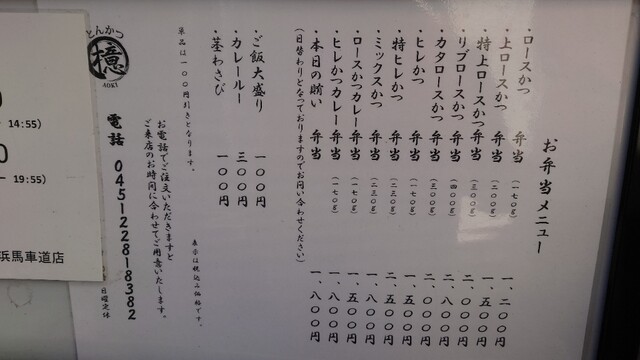 お弁当メニュー
・ロースかつ 弁当 (一七〇g) 一、二〇〇円
・上ロースかつ 弁当 (二〇〇g) 一、五〇〇円
・特上ロースかつ 弁当 (三〇〇g) 二、〇〇〇円
・リブロースかつ 弁当 (四〇〇g) 二、八〇〇円
・カタロースかつ 弁当 (三〇〇g) 二、〇〇〇円
・ヒレかつ 弁当 (一七〇g) 一、五〇〇円
・特ヒレかつ 弁当 (二三〇g) 二、五〇〇円
・ミックスかつ 弁当 (二三〇g) 一、八〇〇円
・ロースかつカレー弁当 (一七〇g) 一、五〇〇円
・ヒレかつカレー弁当 (一七〇g) 一、八〇〇円
・本日の賄い 弁当 一、八〇〇円
(日替わりとなっておりますのでお問い合わせください)
・ご飯大盛り 一〇〇円
・カレールー 三〇〇円
・茎わさび 一〇〇円
表示は税込み価格です。
単品は一〇〇円引きとなります。
お電話でご注文いただきますと
ご来店のお時間に合わせてご用意いたします。
電話 0451228118382
日曜定休
とんかつ
檍
AOKI
14:55)
0
19:55)
浜馬車道店